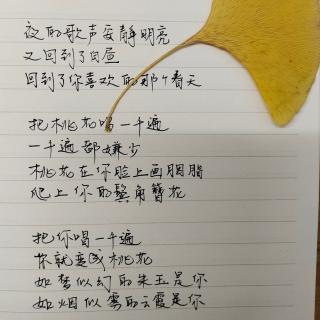 夜的歌声安静明亮
又回到了白昼
回到了你喜欢的那个春天
把桃花唱一千遍
一千遍都嫌少
桃花在你脸上画胭脂
爬上你的鬓角簪花
把你唱一千遍
你就变成桃花
如梦似幻的朱玉是你
如烟似雾的云霞是你